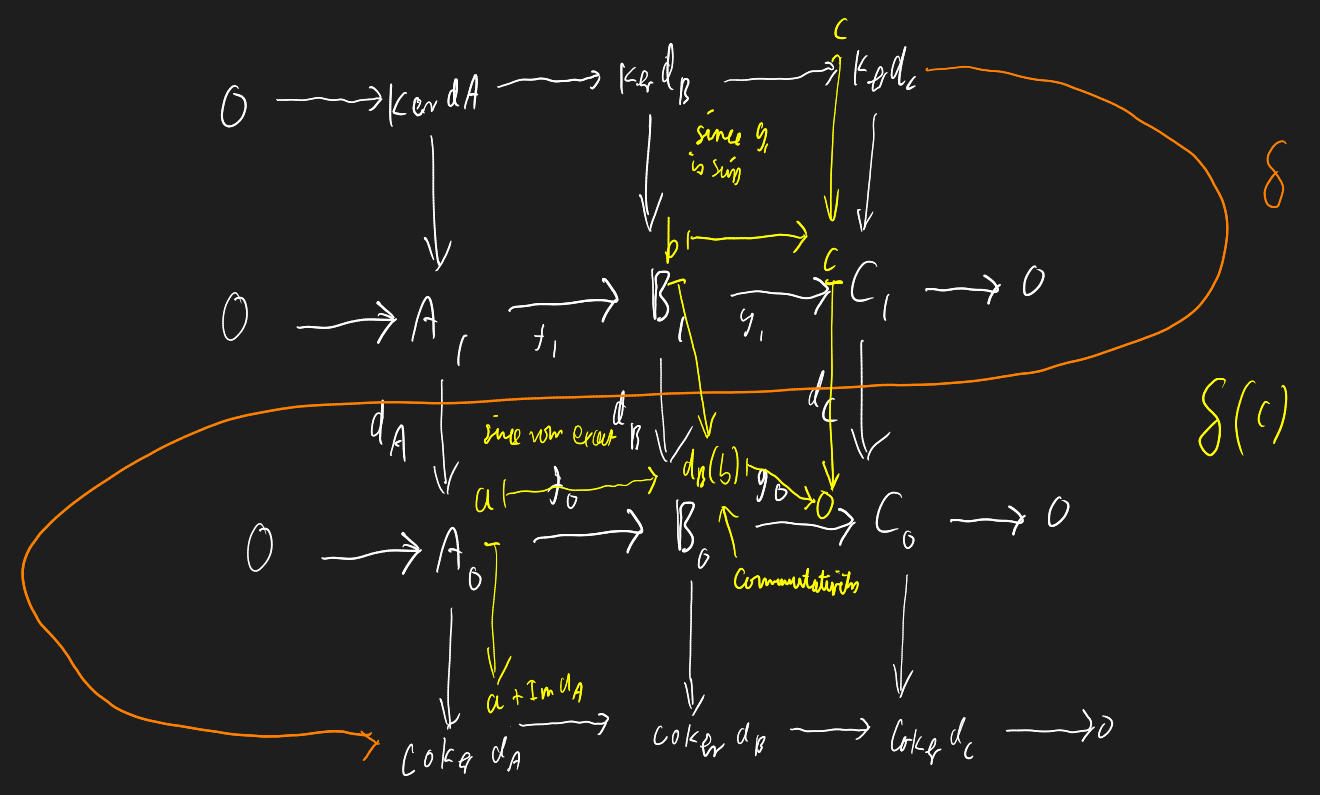 C
0 ker dA ker d_B ker d_C
since g_1
is surj
δ
b
C
0 A_1 B_1 C_1 0
f_1 g_1
δ(c)
d_A d_B d_C
since row exact
a f_0 d_B(b) g_0 0
0 A_0 B_0 C_0 0
commutativity
a + Im d_A
coker d_A coker d_B coker d_C 0